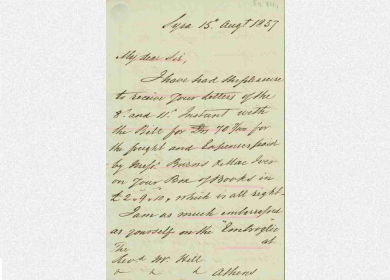 Syra 15. Augt 1857
My dear Sir,
I have had the pleasure
to receive your letters of the
8. and 11. Instant with
the Bill for 70 for
the freight and Expenses paid
by Messrs Burns & Mac Iver
on your Box of Books in
£2.9.10, which is all right -
I am as much embarrassed
as yourself on the "Imbroglio"
at
The
Revd Mr Hill
Athens